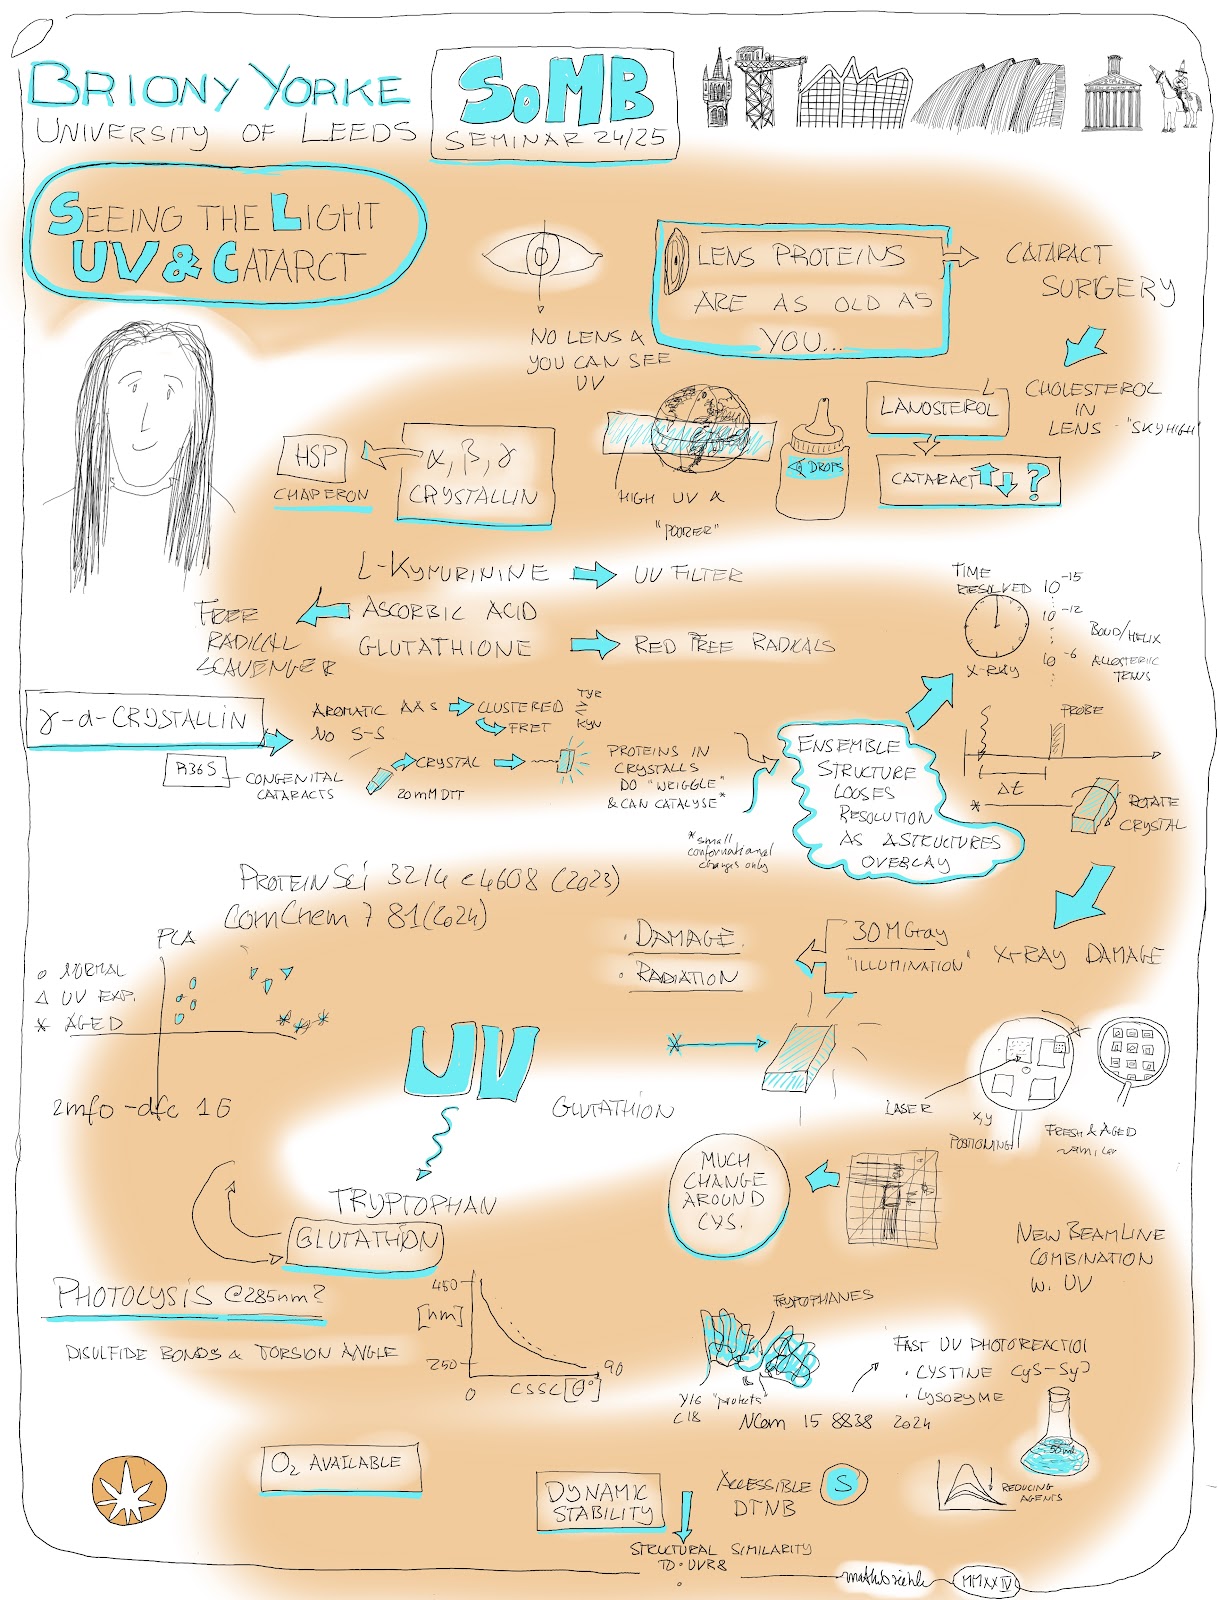 BRIONY YORKE
UNIVERSITY OF LEEDS
SoMB
SEMINAR 24/25
SEEING THE LIGHT
UV & CATARCT
NO LENS &
YOU CAN SEE
UV
LENS PROTEINS
ARE AS OLD AS
YOU...
CATARACT
SURGERY
CHOLESTEROL
IN
LENS - "SKYHIGH"
L
LANOSTEROL
CATARACT ?
DROPS
HIGH UV &
"POORER"
HSP
CHAPERON
α, β, γ
CRYSTALLIN
L-KYNURININE
UV FILTER
ASCORBIC ACID
FREE
RADICAL
SCAVENGER
GLUTATHIONE
RED FREE RADICALS
TIME
RESOLVED
X-RAY
10-15
10-12
10-6
BOND/HELIX
ALLOSTERIC
γ-d-CRYSTALLIN
AROMATIC AAS
NO S-S
CLUSTERED
FRET
TYR
KYN
R36S
CONGENITAL
CATARACTS
20mM DTT
CRYSTAL
PROTEINS IN
CRYSTALLS
DO "WRIGGLE"
& CAN CATALYSE*
*small
conformational
changes only
ENSEMBLE
STRUCTURE
LOOSES
RESOLUTION
AS ΔSTRUCTURES
OVERLAY
PROBE
Δt
*
ROTATE
CRYSTAL
PROTEIN SCI 32/4 e4608 (2023)
COMCHEM 7 81 (2024)
PCA
○ NORMAL
△ UV EXP.
* AGED
2mfo-dfc 1G
. DAMAGE.
. RADIATION
30MGray
"ILLUMINATION"
X-RAY DAMAGE
UV
GLUTATHION
LASER
X,Y
POSITIONING
FRESH & AGED
MUCH
CHANGE
AROUND
CYS.
TRYPTOPHAN
GLUTATHION
NEW BEAMLINE
COMBINATION
W. UV
PHOTOLYSIS @285nm?
DISULFIDE BONDS & TORSION ANGLE
450
[nm]
250
0
CSSC[θ°]
90
TRYPTOPHANES
Y16
C18
"protects"
NCom 15 8838 2024
FAST UV PHOTOREACTION
. CYSTINE CyS-SyJ
. LYSOZYME
50 ml
REDUCING
AGENTS
O2 AVAILABLE
DYNAMIC
STABILITY
ACCESSIBLE
DTNB
S
STRUCTURAL SIMILARITY
TO. UVR8
MMXXIV